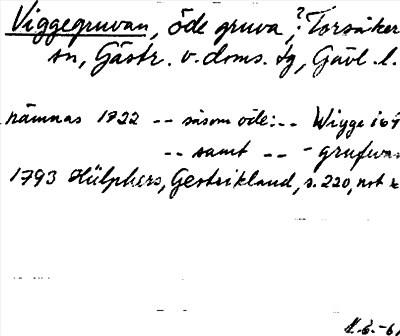 Viggegruvan, öde gruva, ? Torsåker
sn, Gästr. v. doms. tg, Gävl. l.
nämnas 1722 -- såsom öde: -- Wigge
-- samt -- - grufwan
1793 Hülphers, Gestrikland, s. 220, not